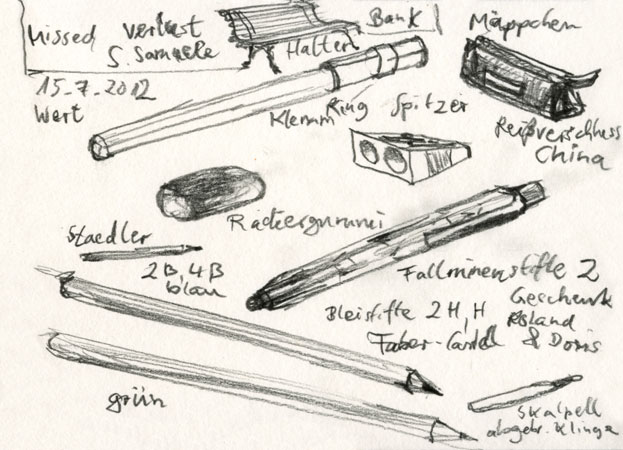 Missed Verlust
S. Samuele
Bank
Mäppchen
15-7-2012
Wert
Halter
Klemm Ring Spitzer
Reißverschluss
China
Radiergummi
Staedler
2B, 4B
blau
Fallminenstifte 2
Geschenk
Roland
& Doris
Bleistifte 2H, H
Faber-Castell
grün
Skalpell
abgebr. Klinge